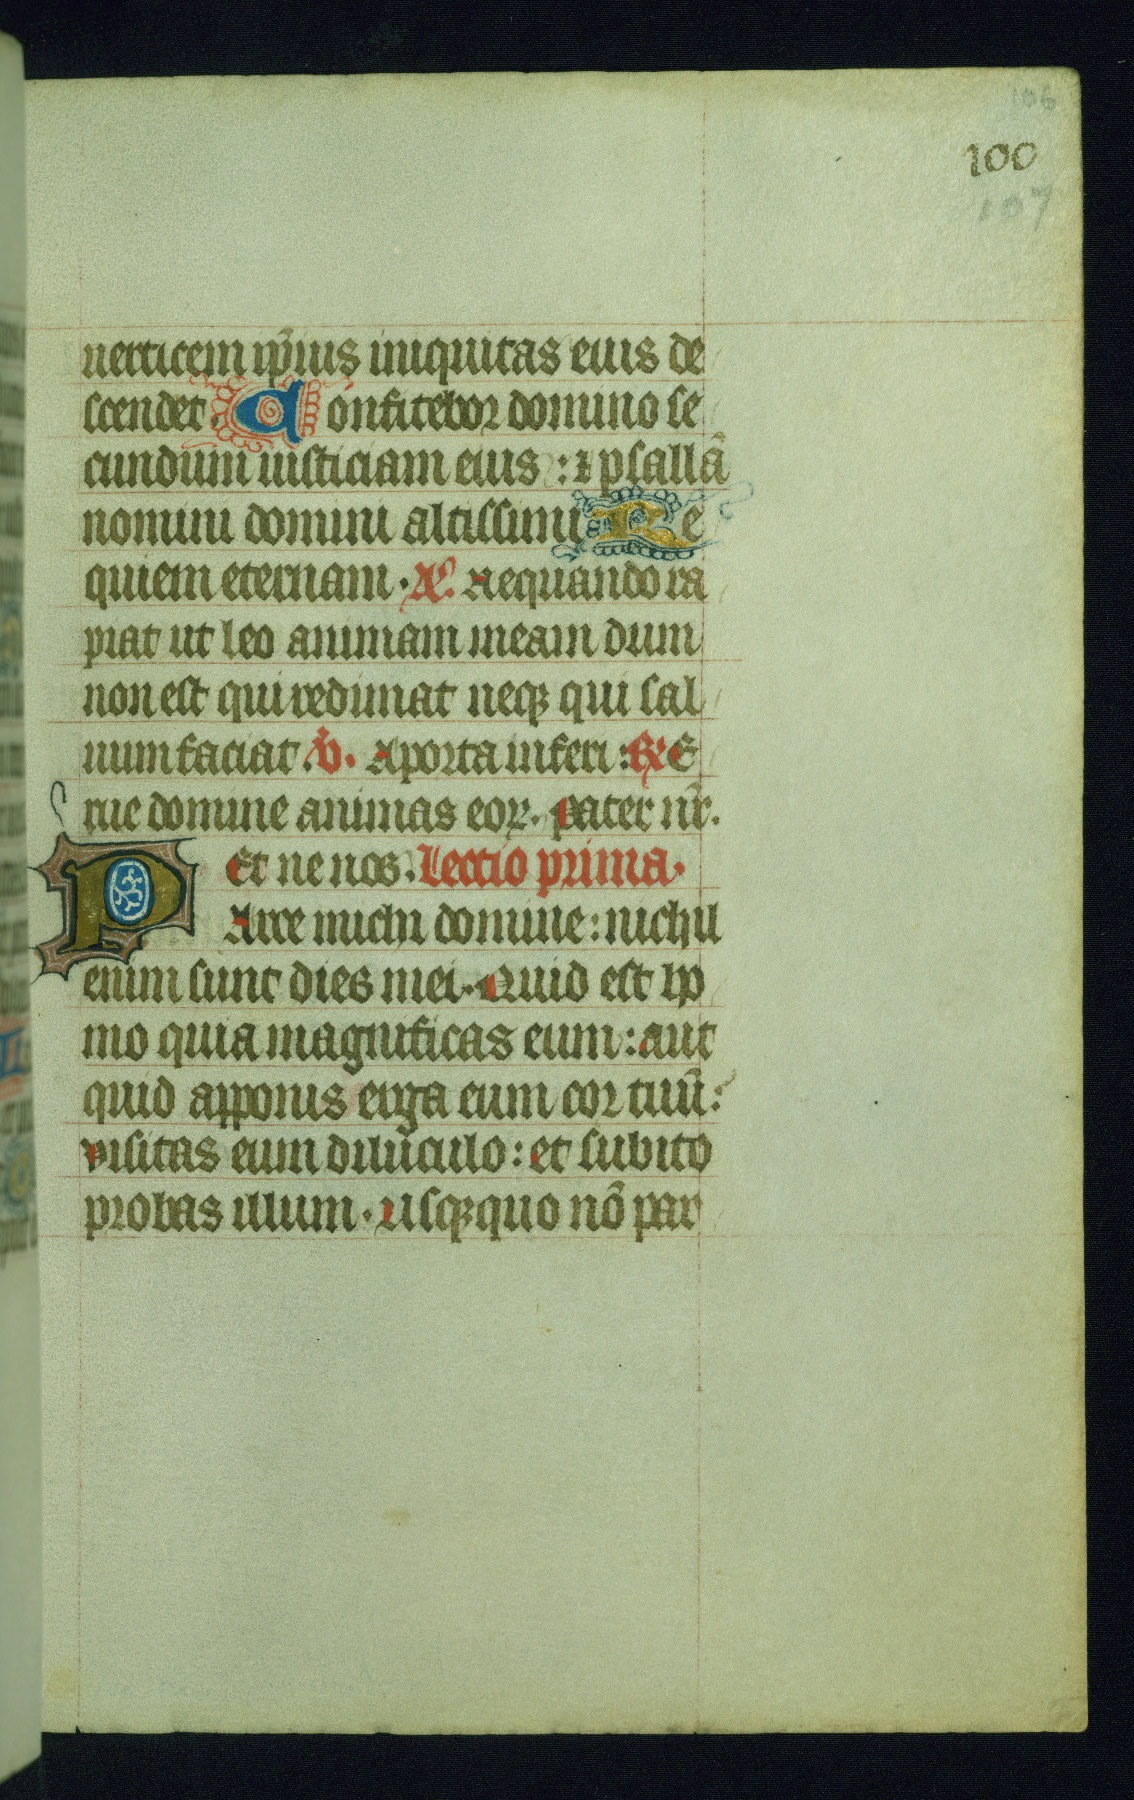 106
100
107
uerticem ip̄ius iniquitas eius de
scendet. Confitebor domino se
cundum iusticiam eius : ⁊ psallā
nomini domini altissimi Re
quiem eternam . Aē. Nequando ra
piat ut leo animam meam dum
non est qui redimat neqꝫ qui sal
uum faciat. v̄. A porta inferi : ℞ E
rue domine animas eoꝝ. Pater nr̄.
Et ne nos. Lectio prima.
Parce michi domine: nichil
enim sunt dies mei. Quid est ho
mo quia magnificas eum : aut
quid apponis erga eum cor tuū:
visitas eum diluculo : et subito
probas illum . Usqꝫquo nō par